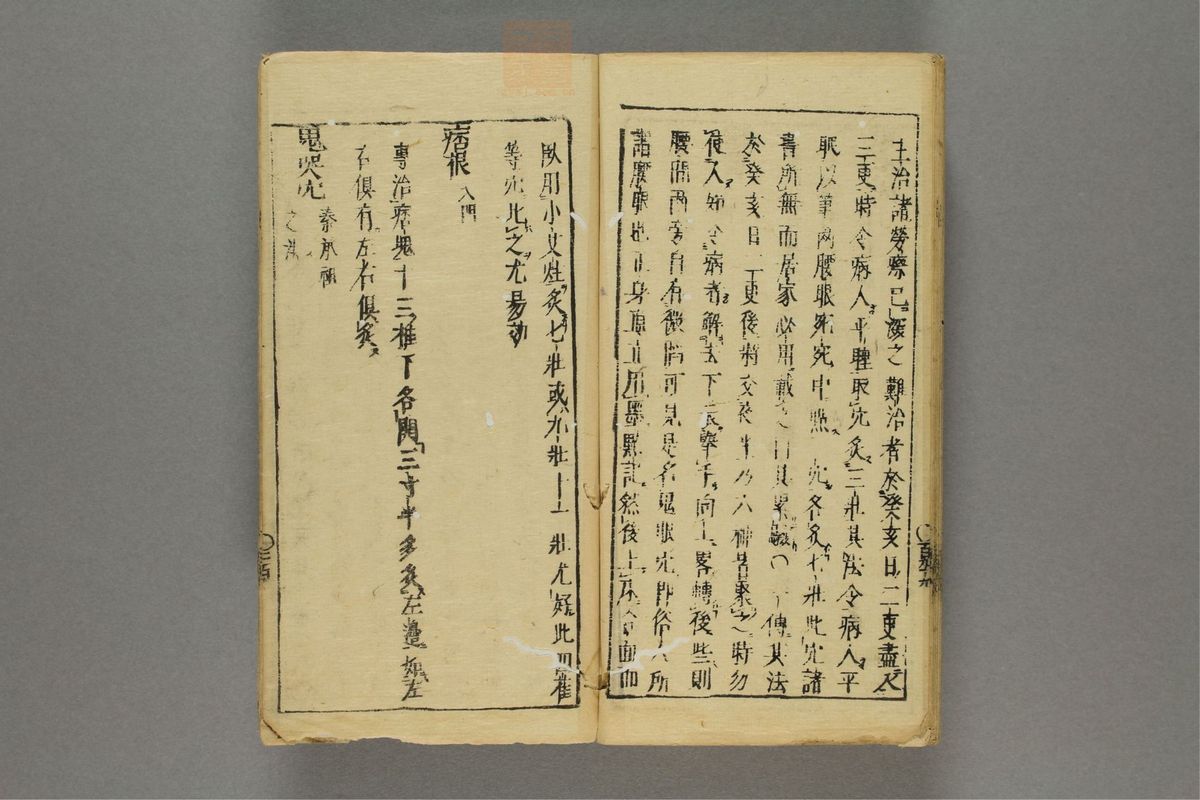 主治諸勞瘵已深之難治者於癸亥日二更盡入
三更時令病人平睡取穴灸三壯其法令病人平
眠以筆兩腰眼宛宛中點二穴各灸七壯此穴諸
書所無而居家必用載之曰其累試
傳其法
於癸亥日二更後將交癸亥乃六神皆聚之時勿
使人知令病者解去下衣舉手向上畧轉後些則
腰間兩旁自有微陷可見是名鬼眼穴即俗人所
謂腰眼也正身直立用墨點記然後上床合面而
臥用小艾炷灸七壯或九壯十一壯尤好此四崔
等穴比之尤易効
痞根 入門
專治痞塊十三椎下各開三寸半多灸左邊如左
右俱有左右俱灸
鬼哭穴 秦承祖
之法